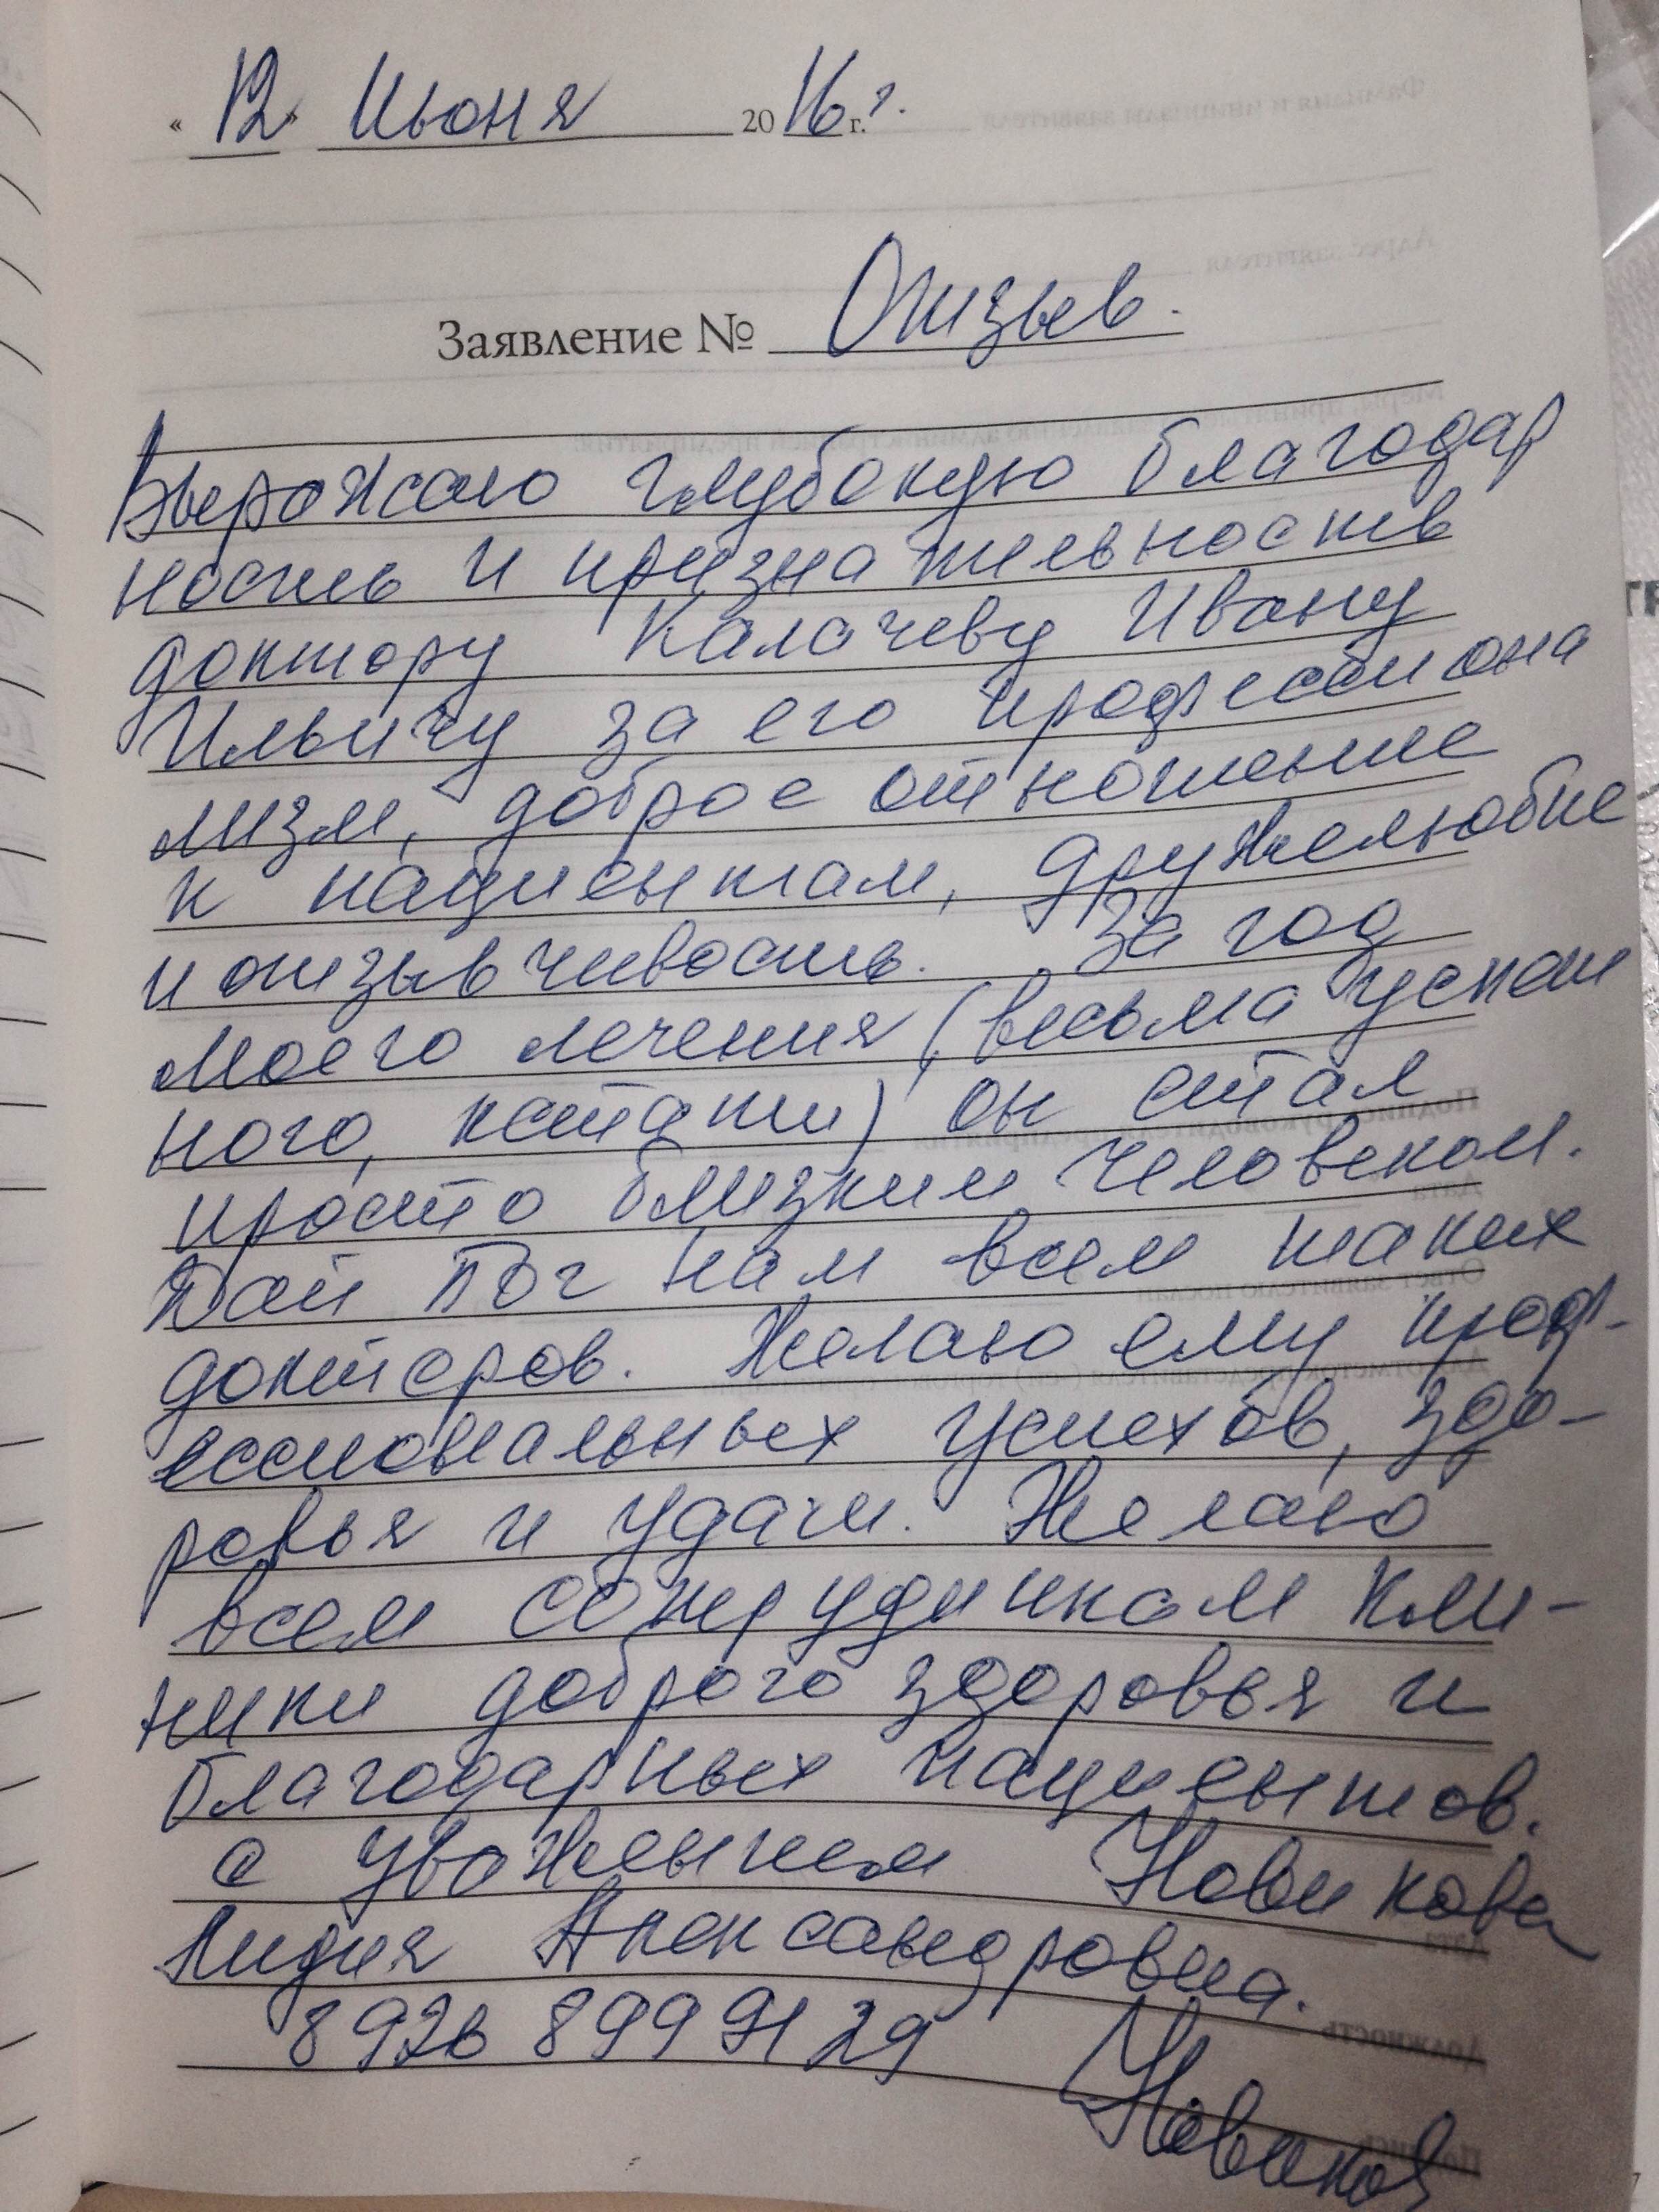 « 12 » Июня 2016 г. г.
Заявление № Отзыв.
Выражаю глубокую благодар
ность и признательность
доктору Калачеву Ивану
Ильичу за его профессиона
лизм, доброе отношение
к пациентам, дружелюбие
и отзывчивость. За год
моего лечения (весьма успеш
ного, кстати) он стал
просто близким человеком.
Дай Бог нам всем таких
докторов. Желаю ему проф-
ессиональных успехов, здо-
ровья и удачи. Желаю
всем сотрудникам кли-
ники доброго здоровья и
благодарных пациентов.
С уважением Новикова
Лидия Александровна.
8926 8999129